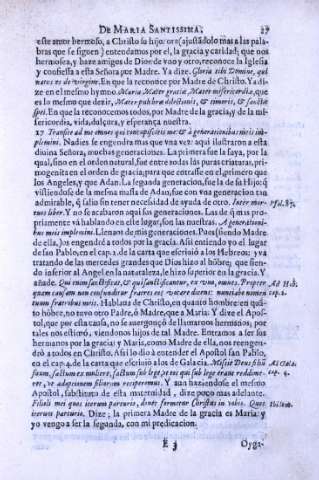 DE MARIA SANTISSIMA. 27
este amor hermoso, a Christo su hijo: oro (ajustãdolo mas a las pala-
bras que se siguen) entendamos por el, la gracia y caridad; que nos
hermosea, y haze amigos de Dios de vno y otro, reconoce la Iglesia
y confiessa a esta Señora por Madre. Ya dize. Gloria tibi Domine, qui
natus es de virgine. En que la reconoce por Madre de Christo. Ya di-
ze en el mesmo hymno. Maria Mater gratia, Mater misericordia, que
es lo mesmo que dezir, Mater pulchra dilectionis, & timoris, & sancta
spei. En que la reconocemos todos, por Madre de la gracia, y de la mi-
sericordia, vida, dulçura, y esperança nuestra.
17 Transite ad me omnes qui concupiscitis me & a generationibus meis im-
plemini. Nadie se engendra mas que vna vez: aqui ilustraron a esta
diuina Señora, muchas generaciones. La primera fue la suya, por la
qual, sino en el orden natural, fue entre todas las puras criaturas, pri-
mogenita en el orden de gracia, para que entrasse en el, primero que
los Angeles, y que Adan. La segunda generacion, fue la de su Hijo: q̃
vistiendose de la mesma massa de Adan, fue con vna generacion tan
admirable, q̃ salio sin tener necessidad de ayuda de otro. Inter mor-
tuos liber. Y no se acabaron aqui sus generaciones. Las de q̃ mas pro-
Psal. 87.
piamente va hablando en este lugar, son las nuestras. A generationi-
bus meis implemini. Llenaos de mis generaciones. Pues (siendo Madre
de ella,) os engendrè a todos por la gracia. Assi entiendo yo el lugar
de san Pablo, en el cap. 2. de la carta que escriviò a los Hebreos: y va
tratando de las mercedes grandes que Dios hizo al hõbre; que sien-
do inferior al Angel en la naturaleza, le hizo superior en la gracia. Y
añade. Qui enim sanctificat, & qui sanctificantur, ex vno, omnes. Propter
Ad Heb.
quam causam non confunditur fratres eos vocare dicens: nuntiabo nomen
cap. 2.
tuum fratribus meis. Hablaua de Christo, en quanto hombre: en quã-
to hõbre, no tuvo otro Padre, ò Madre, que a Maria: Y dize el Apos-
tol, que por esta causa, no se auergonçò de llamarnos hermanos, por
tales nos estimò, viendonos hijos de tal Madre. Entramos a ser sus
hermanos por la gracia: y Maria, como Madre de ella, nos reengen-
drò a todos en Christo. Assi lo dio a entender el Apostol san Pablo,
en el cap. 4. de la carta que escriuio a los de Galacia. Missit Deus filiũ
Ad Gala.
suum, factum ex muliere, factum sub lege, vt eos qui sub lege erant redime-
cap. 4.
ret, vt adoptionem filiorum reciperemus. Y aun haziendose el mesmo
Apostol, substituto de esta maternidad, dize poco mas adelante.
Filioli mei quos iterum parturio, donec formetur Christus in vobis. Quos
Ibidem.
iterum parturio. Dize; la primera Madre de la gracia es Maria: y
yo vengo a ser la segunda, con mi predicacion.
E 3 Oyga-